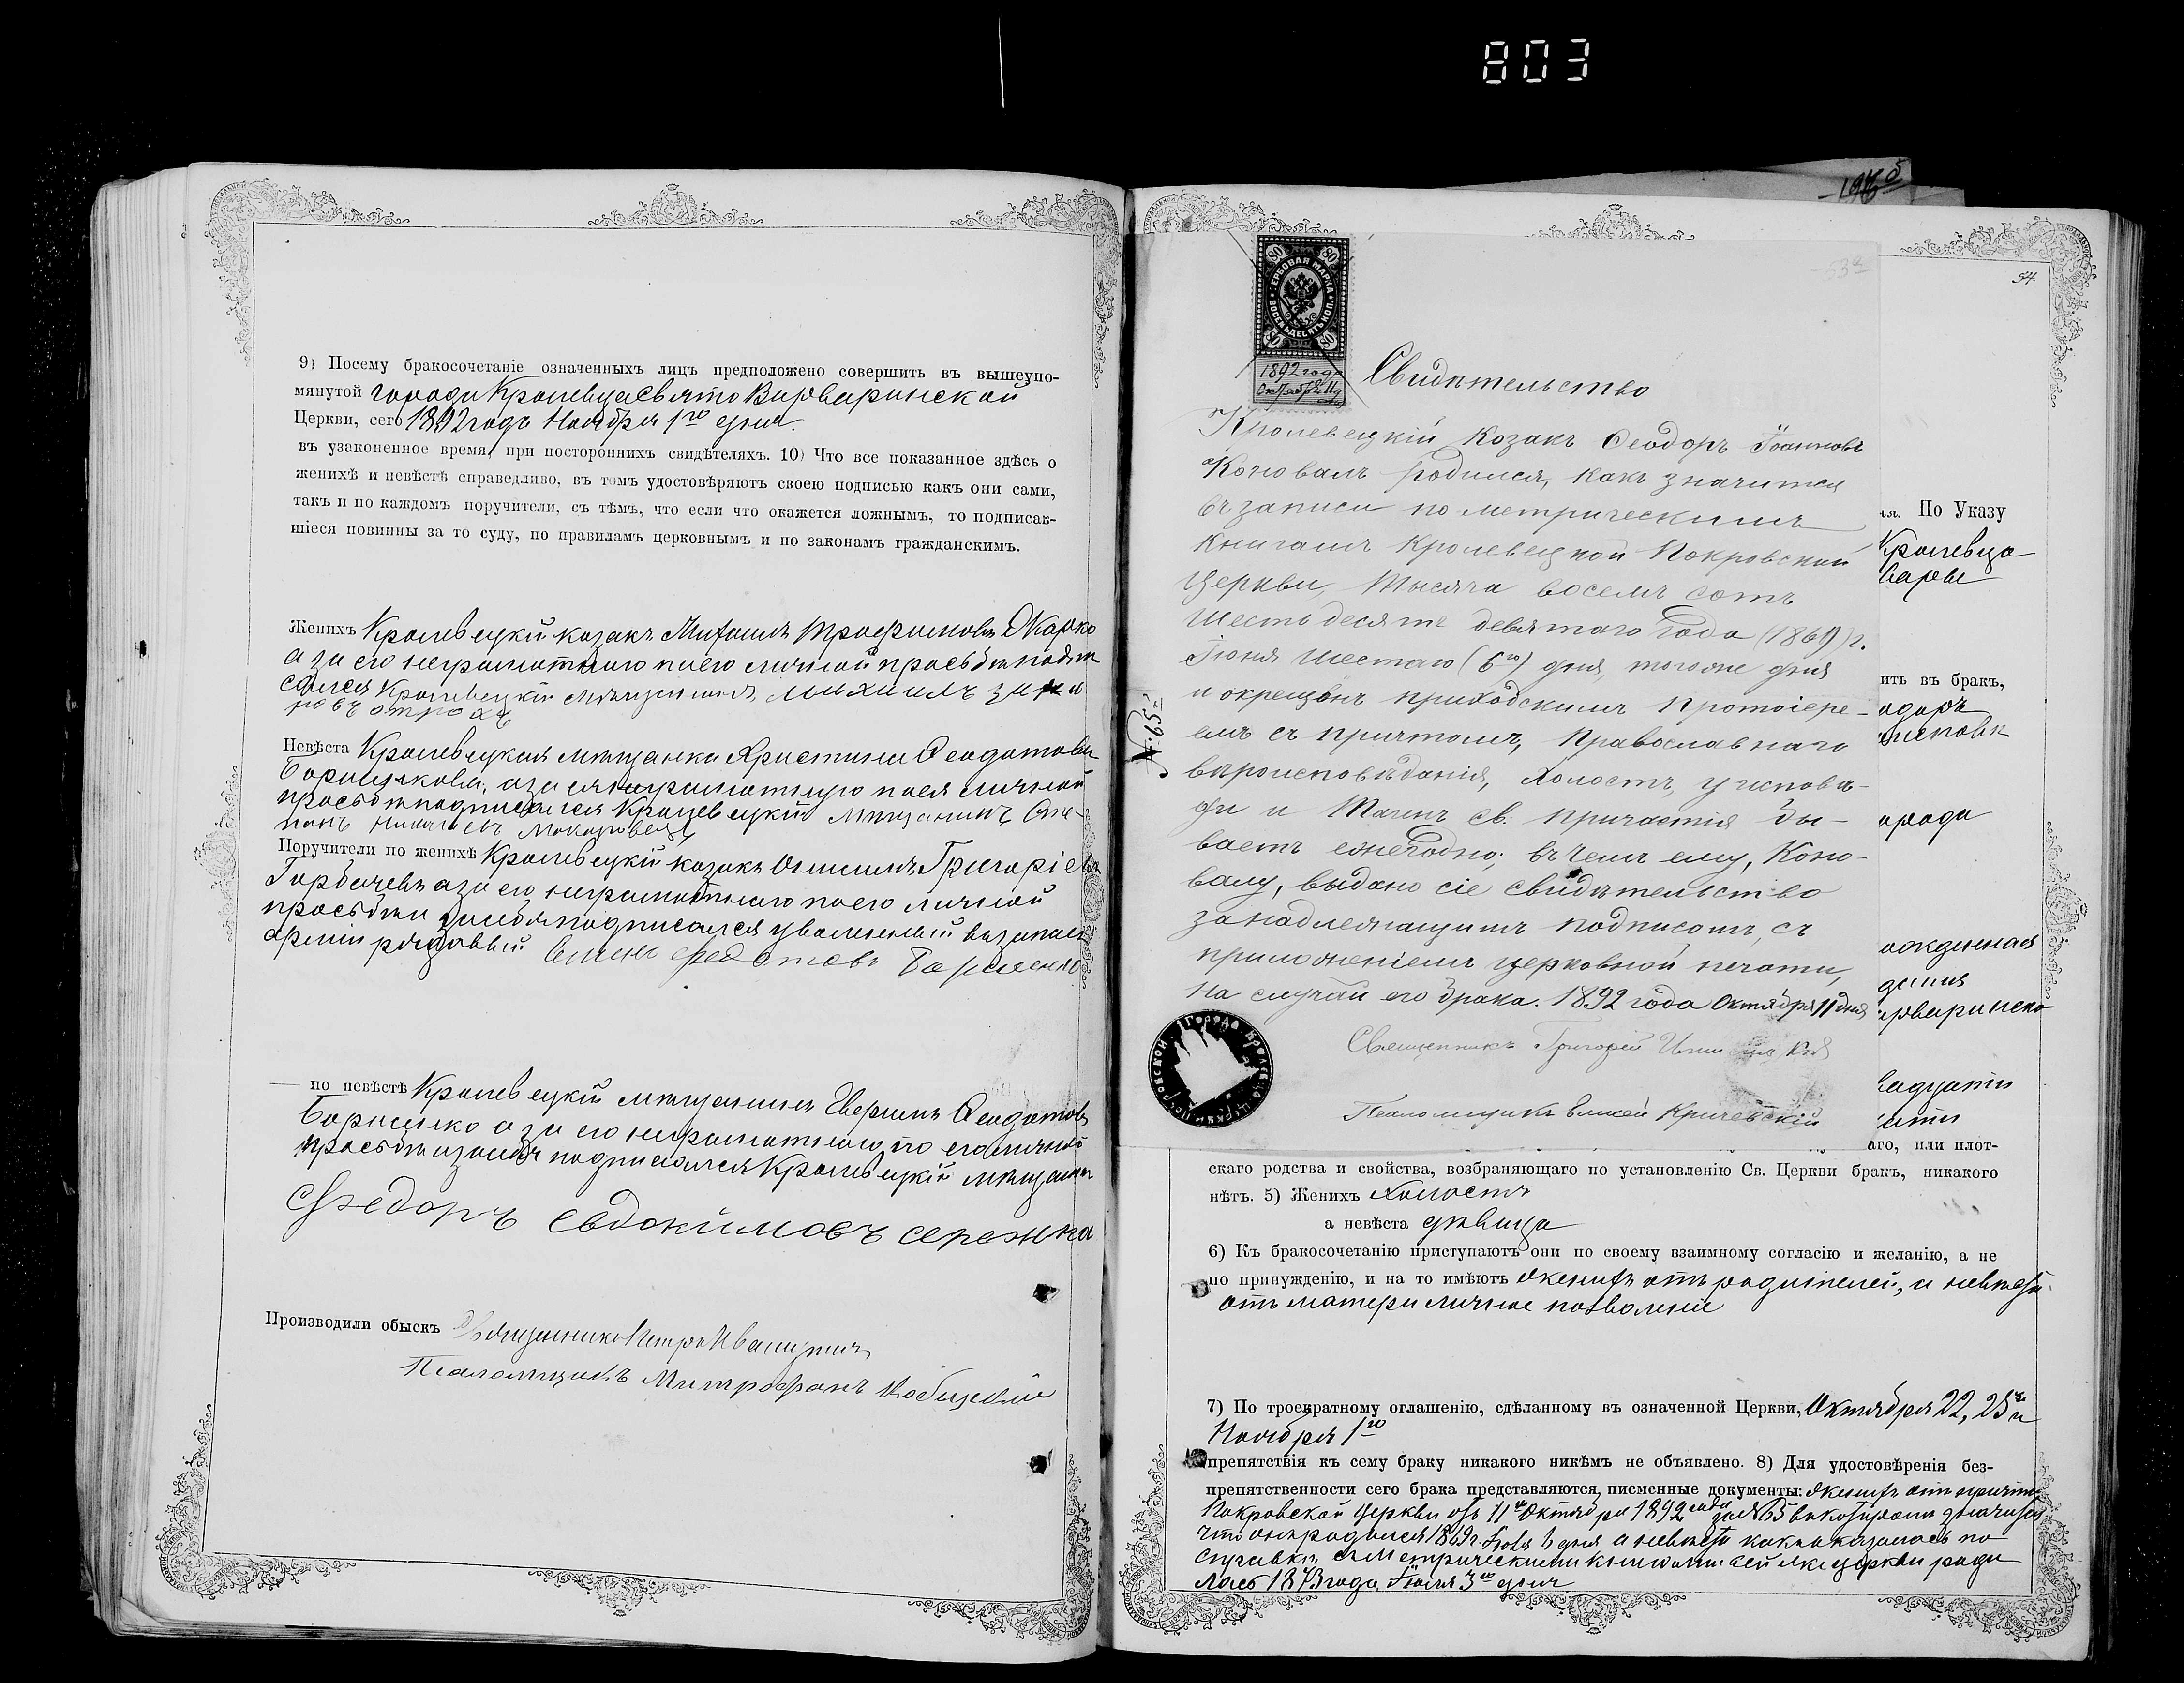 803
9) Посему бракосочетаніе означенныхъ лицъ предположено совершить въ вышеупо-
мянутой города Кролевца Свято Варваринской
Церкви, сего 1892 года Ноября 1го дня.
въ узаконенное время, при постороннихъ свидѣтеляхъ. 10) Что все показанное здѣсь о
женихѣ и невѣстѣ справедливо, въ томъ удостовѣряютъ своею подписью какъ они сами,
такъ и по каждомъ поручители, съ тѣмъ, что если что окажется ложнымъ, то подписав-
шіеся повинны за то суду, по правиламъ церковнымъ и по законамъ гражданскимъ.
Женихъ Кролевецкій козакъ Михаилъ Трофимовъ
а за его неграмотнаго по его личной просьбѣ подпи
сался Кролевецкій мѣщанинъ Михаилъ
Невѣста Кролевецкая мѣщанка Христина Феодотова
Борисенкова, а за ея неграмотную по ея личной
просьбѣ подписался Кролевецкій мѣщанинъ Сте-
панъ Макаровецъ
Поручители по женихѣ Кролевецкій козакъ Григоріевъ
Горбачевъ а за его неграмотнаго по его личной
просьбѣ подписался уволенный въ запасъ
арміи рядовый Федотовъ Борисенко
по невѣстѣ Кролевецкій мѣщанинъ Феодотовъ
Борисенко а за его неграмотнаго, по его личной
просьбѣ подписался Кролевецкій мѣщанинъ
Федоръ Евдокимовъ Сережка
Производили обыскъ Священникъ Петръ
Псаломщикъ Митрофанъ
196 5
54.
ГЕРБОВАЯ МАРКА
ВОСЕМЬДЕСЯТЪ КОП.
80 80
80 80
1892 года
Октября 11 д
Свидѣтельство
Кролевецкій Козакъ Феодоръ Іоанновъ
Коновалъ родился, какъ значится
въ записи по метрическимъ
книгамъ Кролевецкой Покровской
Церкви, тысяча восемь сотъ
шестьдесятъ девятаго года (1869) г.
Іюня шестаго (6го) дня, того же дня
и окрещенъ приходскимъ Протоіере-
емъ съ причтомъ, Православнаго
вѣроисповѣданія, холостъ, у исповѣ-
ди и Таинъ Св. Причастія бы-
ваетъ ежегодно; въ чемъ ему, Коно-
валу, выдано сіе свидѣтельство
за надлежащимъ подписомъ, съ
приложеніемъ церковной печати,
на случай его брака. 1892 года Октября 11 дня
Священникъ Григорій
Псаломщикъ Кричевскій
№ 65
ія. По Указу
Кролевца
варвы
ить въ бракъ,
одоръ
города
рожденная
варинско
аго, или плот-
скаго родства и свойства, возбраняющаго по установленію Св. Церкви бракъ, никакого
нѣтъ. 5) Женихъ холостъ
а невѣста дѣвица
6) Къ бракосочетанію приступаютъ они по своему взаимному согласію и желанію, а не
по принужденію, и на то имѣютъ женихъ отъ родителей, и невѣста
отъ матери личное позволеніе
7) По троекратному оглашенію, сдѣланному въ означенной Церкви, Октября 22, 25 и
Ноября 1го
препятствія къ сему браку никакого никѣмъ не объявлено. 8) Для удостовѣренія без-
препятственности сего брака представляются писменные документы: женихъ отъ причта
Покровской Церкви отъ 11го Октября 1892 года за № 65 въ которомъ значится
что онъ родился 1869 г. Іюня 6 дня а невѣста какъ оказалось по
справкѣ съ метрическими книгами сей же церкви роди
лась 1873 года Іюля 3го дня